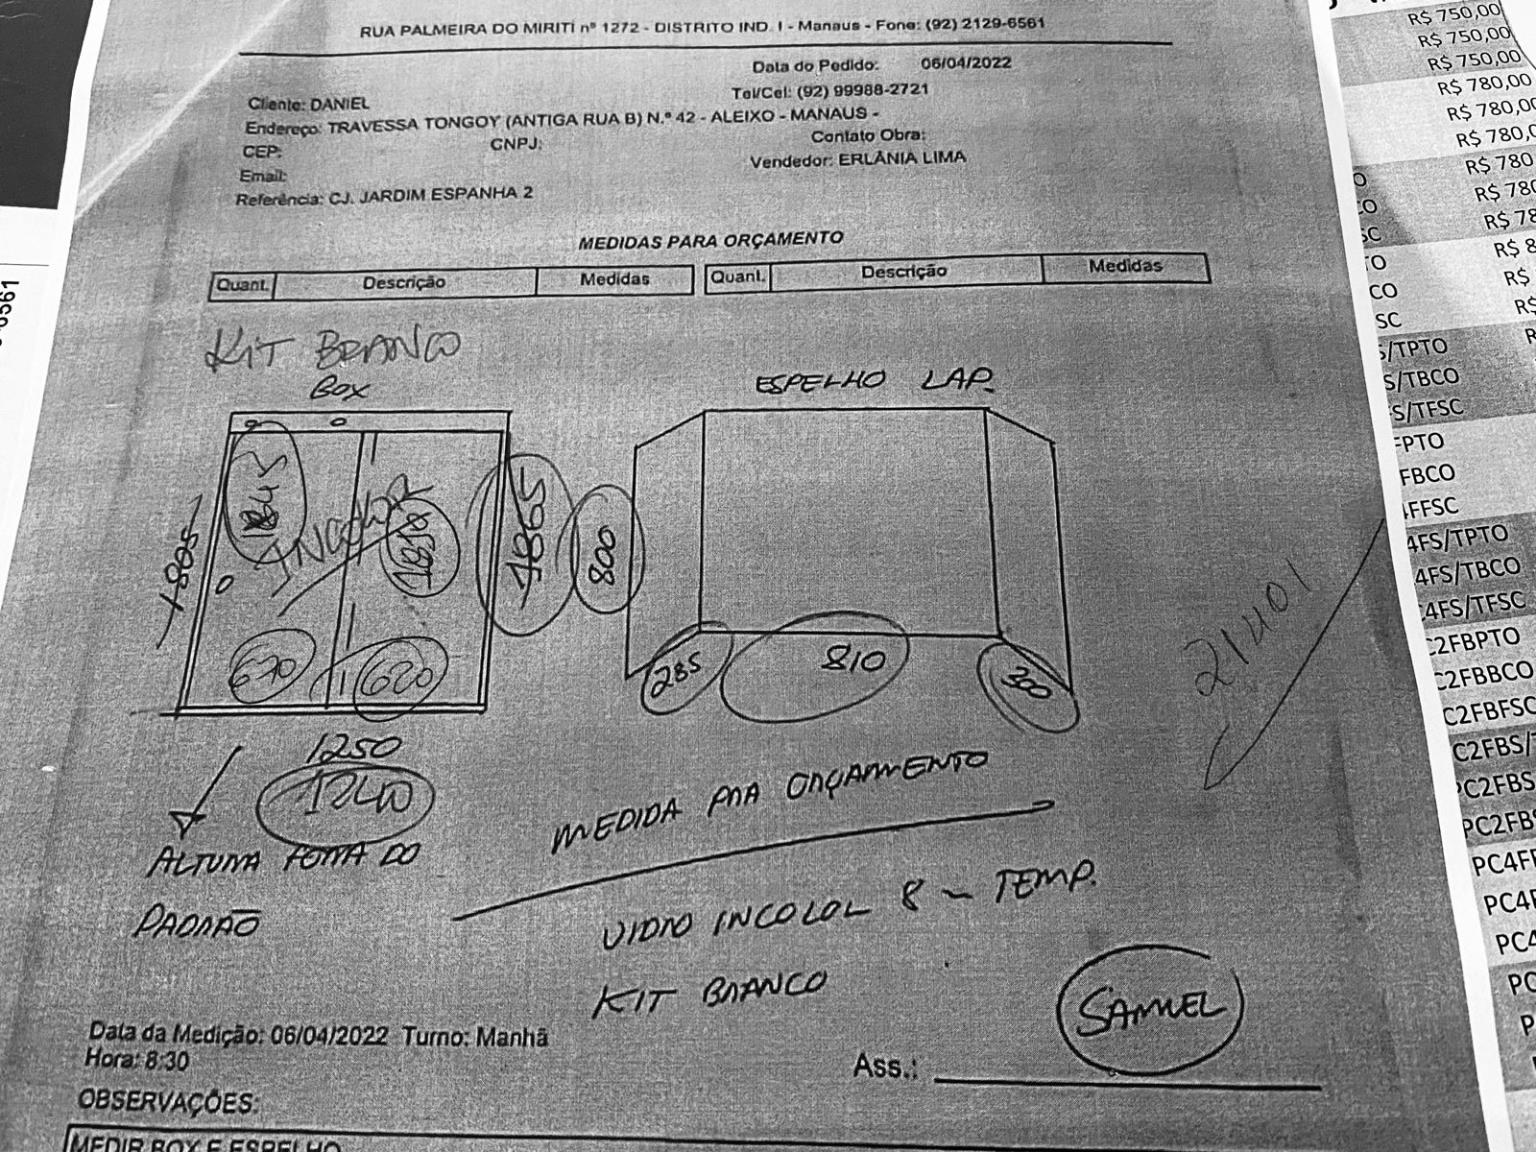 RUA PALMEIRA DO MIRITI nº 1272 - DISTRITO IND. I - Manaus - Fone: (92) 2129-6561
Data do Pedido: 06/04/2022
Cliente: DANIEL
Tel/Cel: (92) 99988-2721
Endereço: TRAVESSA TONGOY (ANTIGA RUA B) N.º 42 - ALEIXO - MANAUS -
CEP:
CNPJ:
Contato Obra:
Email:
Vendedor: ERLÂNIA LIMA
Referência: CJ. JARDIM ESPANHA 2
MEDIDAS PARA ORÇAMENTO
Quant. Descrição Medidas Quant. Descrição Medidas
KIT BRANCO
BOX
ESPELHO LAP.
1845
INCOLOR
1865
800
1805
620
285
810
300
1250
1240
ALTURA FORA DO
PADRÃO
MEDIDA PRA ORÇAMENTO
VIDRO INCOLOL 8 - TEMP.
KIT BRANCO
SAMUEL
21401
Data da Medição: 06/04/2022 Turno: Manhã
Hora: 8:30
Ass.:
OBSERVAÇÕES:
MEDIR BOX E ESPELHO
6561
R$ 750,00
R$ 750,00
R$ 750,00
R$ 780,00
R$ 780,00
R$ 780,0
R$ 780
R$ 780
R$ 78
R$ 8
R$
R$
O
CO
SC
TO
CO
SC
S/TPTO
S/TBCO
FS/TFSC
FPTO
FBCO
4FFSC
4FS/TPTO
4FS/TBCO
C4FS/TFSC
C2FBPTO
C2FBBCO
C2FBFSC
C2FBS/T
PC2FBS
PC2FBS
PC4FF
PC4F
PC4
PC
P